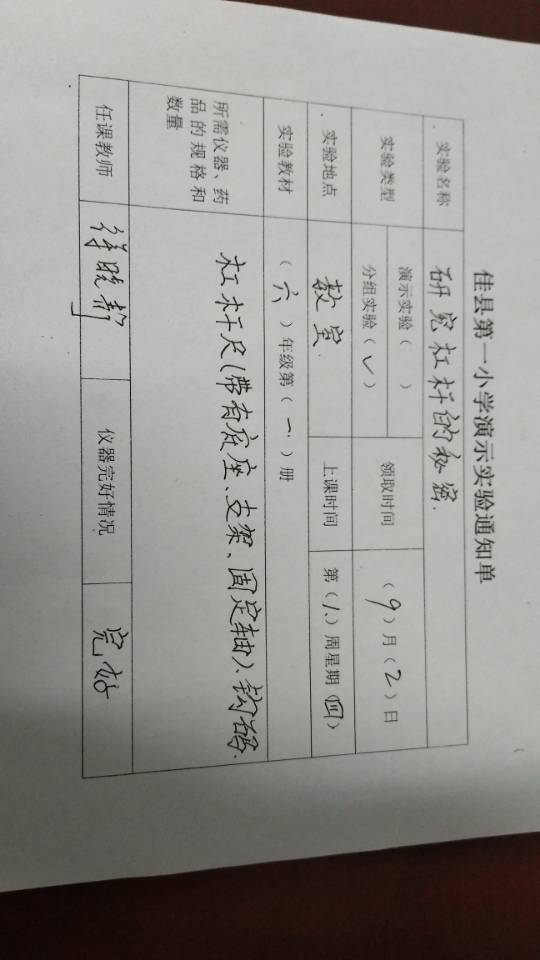 佳县第一小学演示实验通知单
实验名称 研究杠杆的秘密.
实验类型 演示实验（ ） 领取时间 （9）月（2）日
分组实验（✓）
实验地点 教室. 上课时间 第（1.）周星期（四）
实验教材 （六）年级第（一.）册
所需仪器、药
品的规格和
数量
杠杆尺(带有底座、支架、固定轴)、钩码.
任课教师 仪器完好情况 完好